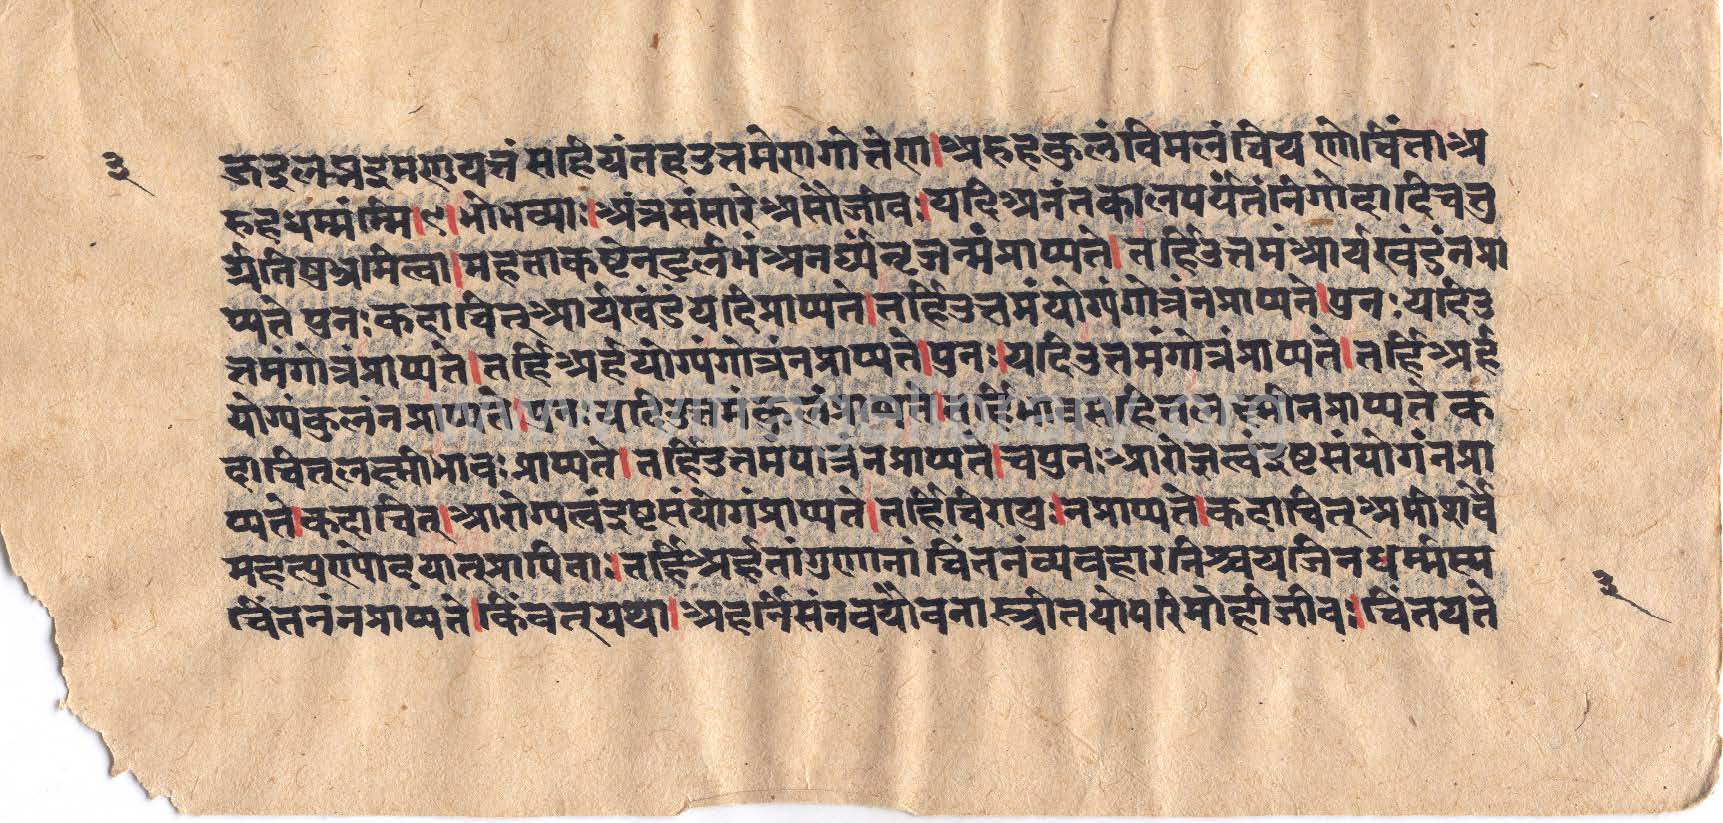 ३
जइलभइमणुयत्तं सहियंतहउत्तमेणगोत्तेण।अरुहकुलंविमलंचिय णोचिंताअ
रुहधम्मंम्मि।९।भोभव्याः।अत्रसंसारेअसौजीवः।यदिअनंतकालपर्यंतंनिगोदादिचतु
र्ग्गतिषुभ्रमित्वा।महताकष्टेनदुर्लभंअनर्घ्यंनृजन्मंप्राप्यते।तर्हिउत्तमंआर्यखंडंनप्रा
प्यते पुनःकदाचित्आर्यखंडंयदिप्राप्यते।तर्हिउत्तमंयोग्यंगोत्रंनप्राप्यते।पुनःयदिउ
त्तमंगोत्रंप्राप्यते।तर्हिअर्हयोग्यंगोत्रंनप्राप्यते।पुनः।यदिउत्तमंगोत्रंप्राप्यते।तर्हिअर्ह
योग्यंकुलंनप्राप्यते।पुनःयदिउत्तमंकुलंप्राप्यते।तर्हिभावसहितलक्ष्मीनप्राप्यते क
दाचित्लक्ष्मीभावःप्राप्यते।तर्हिउत्तमपात्रंनप्राप्यते।चपुनःआरोग्यत्वंइष्टसंयोगंनप्रा
प्यते।कदाचित्।आरोग्यत्वंइष्टसंयोगंप्राप्यते।तर्हिचिरायुः।नप्राप्यते।कदाचित्अमीशर्वे
महत्पुण्योदयात्प्रापिताः।तर्हिअर्हतांगुणानांचिंतनंव्यवहारनिश्चयजिनधर्म्मस्य
चिंतनंनप्राप्यते।किंवत्यथा।अहर्निसंनवयौवनास्त्रीतयोपरिमोहीजीवः।चिंतयते
३
www.vitragelibrary.org